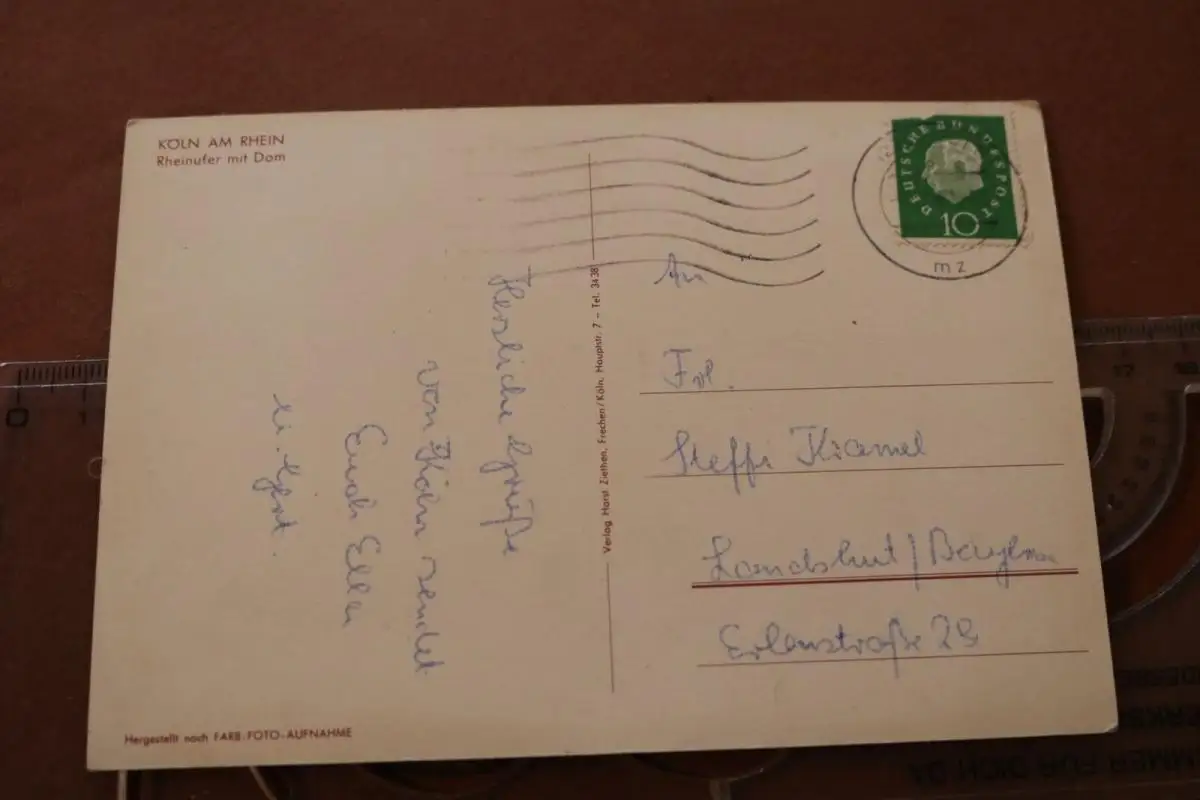 KÖLN AM RHEIN
Rheinufer mit Dom
Herzliche Grüße
von Köln sendet
Euch Ellen
u. Gert.
Hergestellt nach FARB-FOTO-AUFNAHME
Verlag Horst Ziethen, Frechen/Köln, Hauptstr. 7 - Tel. 3438
DEUTSCHE BUNDESPOST
10
mz
An
Frl.
Steffi Kramel
Landshut/Bayern
Erlenstraße 28
0 1
17 18